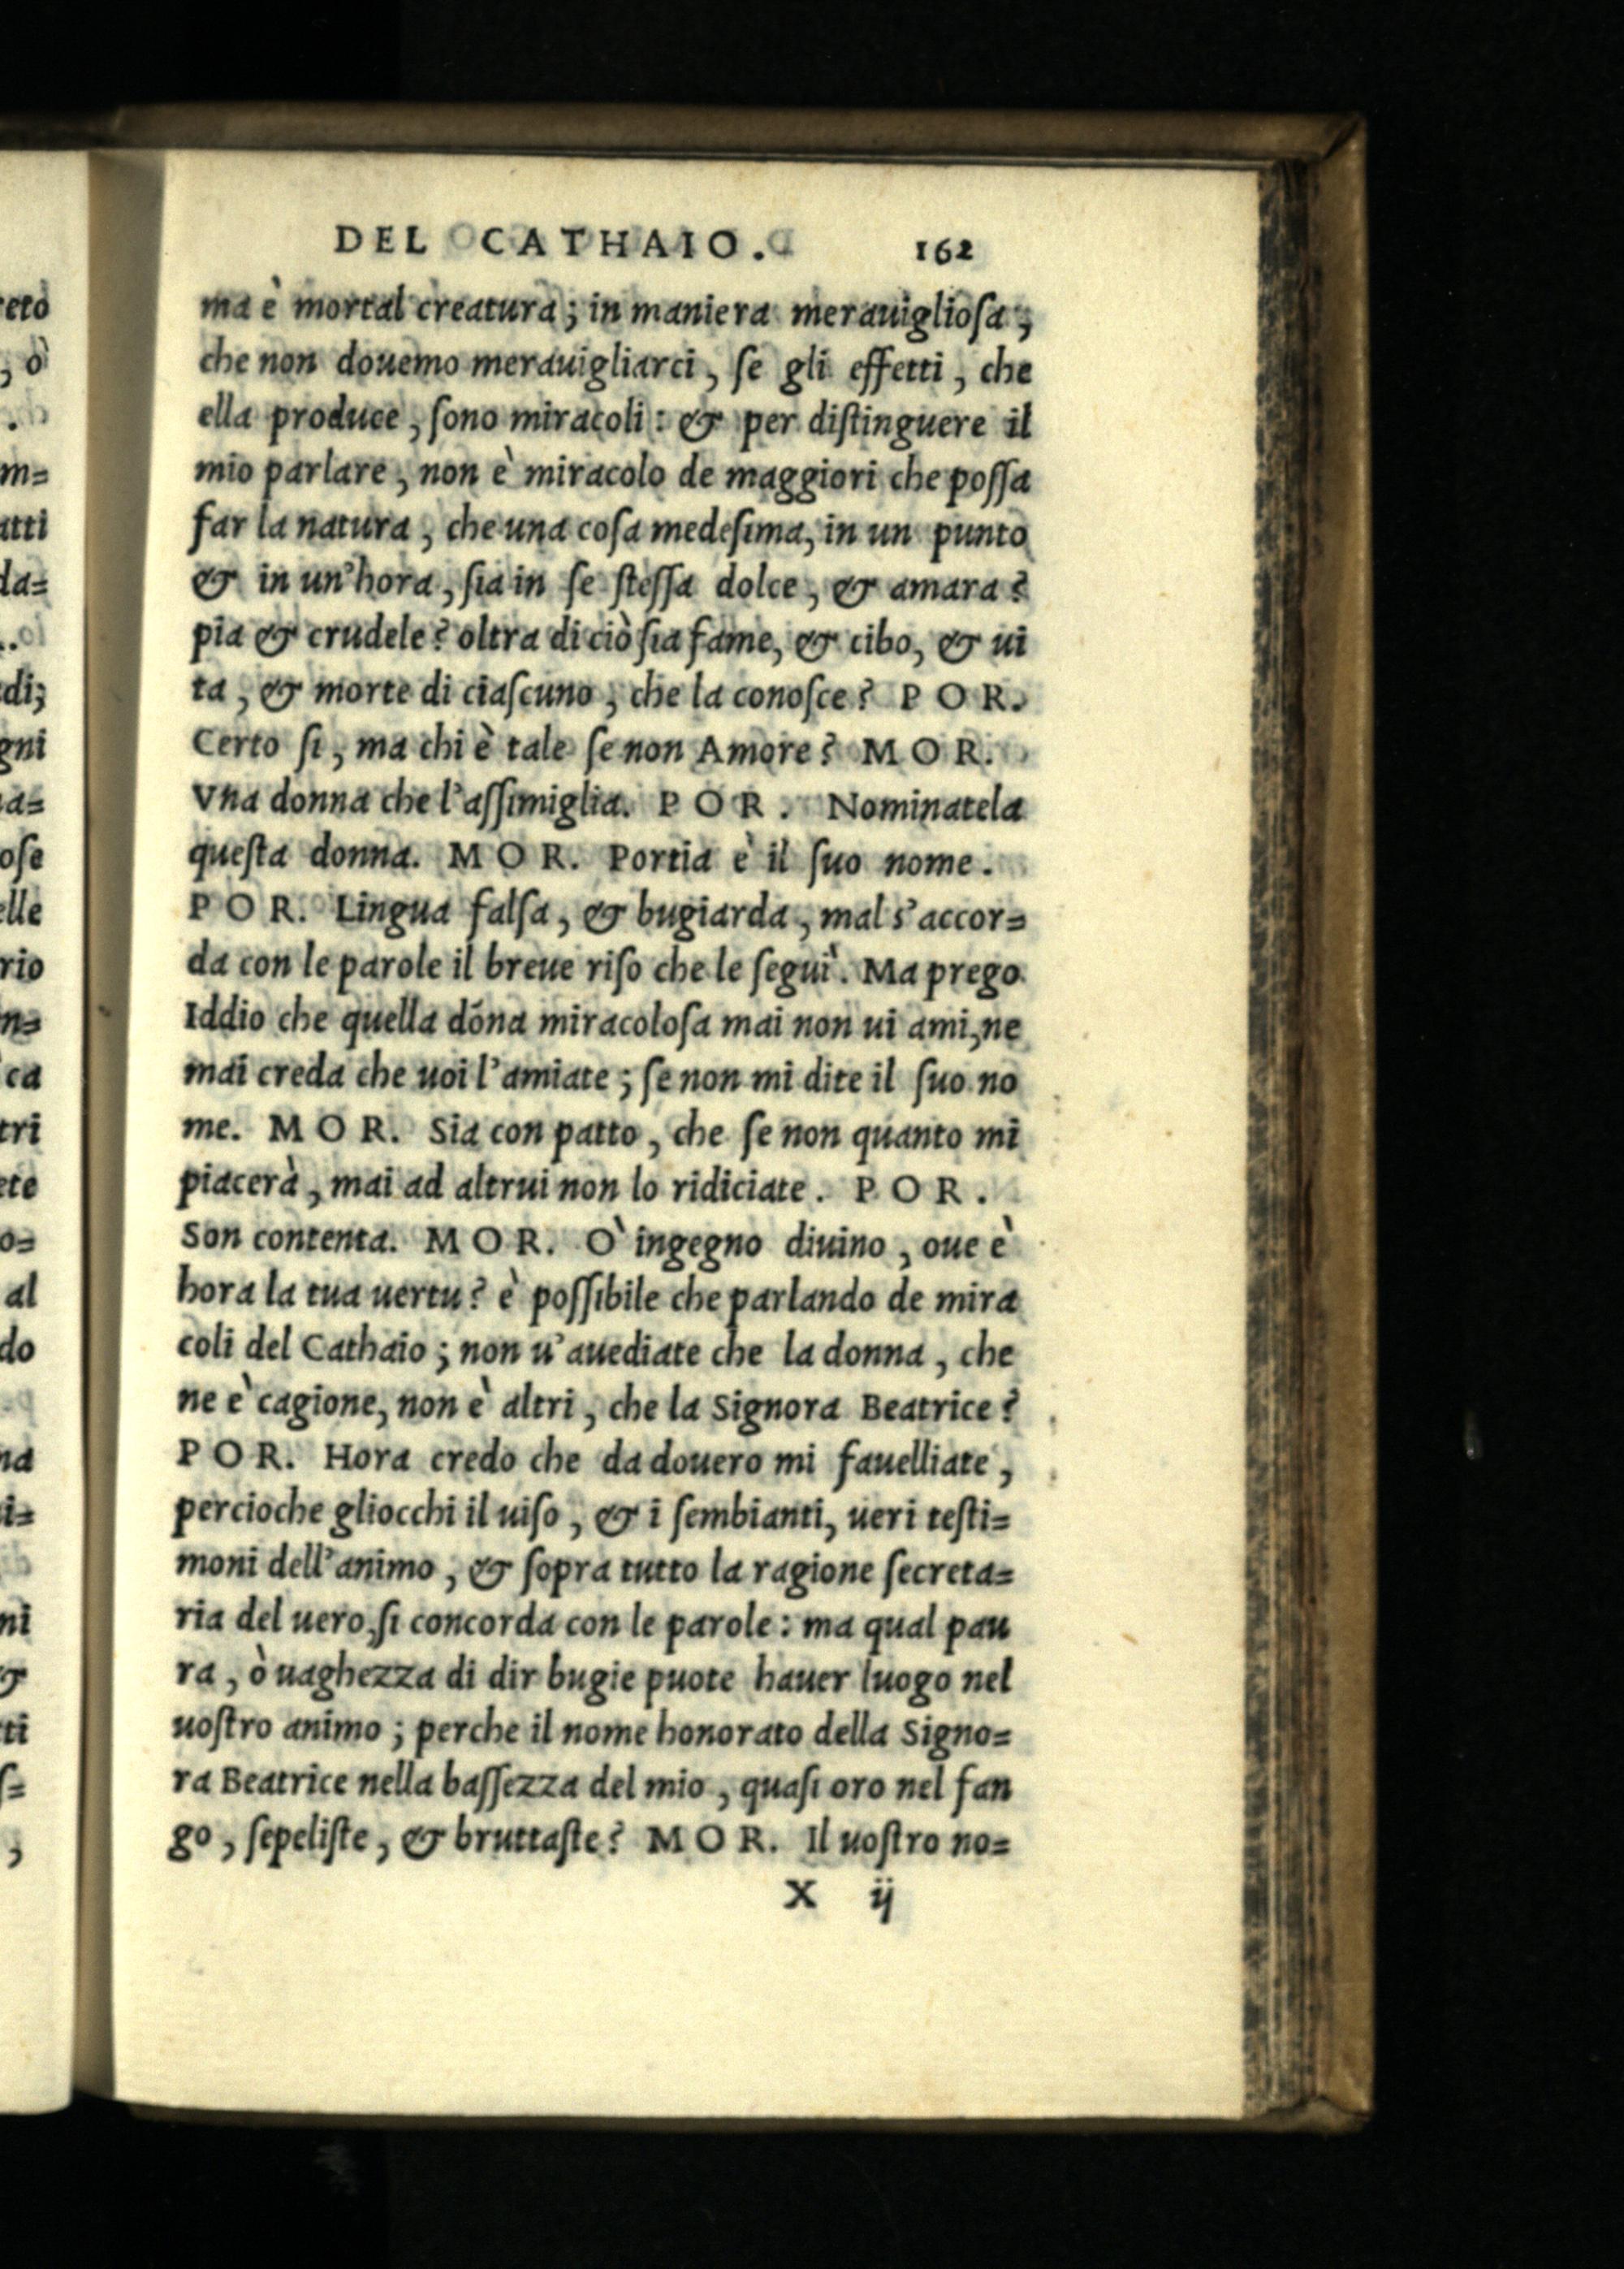 DEL CATHAIO. 162
ma è mortal creatura; in maniera merauiglioſa,
che non douemo merauigliarci, ſe gli effetti, che
ella produce, ſono miracoli: & per diſtinguere il
mio parlare, non è miracolo de maggiori che poſſa
far la natura, che una coſa medeſima, in un punto
& in un'hora, ſia in ſe ſteſſa dolce, & amara?
pia & crudele? oltra di ciò ſia fame, & cibo, & ui
ta, & morte di ciaſcuno, che la conoſce? POR.
Certo ſi, ma chi è tale ſe non Amore? MOR.
Vna donna che l'aſſimiglia. POR. Nominatela
queſta donna. MOR. Portia è il ſuo nome.
POR. Lingua falſa, & bugiarda, mal s'accor=
da con le parole il breue riſo che le ſeguì. Ma prego
Iddio che quella dōna miracoloſa mai non ui ami, ne
mai creda che uoi l'amiate; ſe non mi dite il ſuo no
me. MOR. Sia con patto, che ſe non quanto mi
piacerà, mai ad altrui non lo ridiciate. POR.
Son contenta. MOR. Ò ingegno diuino, oue è
hora la tua uertu? è poſſibile che parlando de mira
coli del Cathaio; non u'auediate che la donna, che
ne è cagione, non è altri, che la Signora Beatrice?
POR. Hora credo che da douero mi fauelliate,
percioche gliocchi il uiſo, & i ſembianti, ueri teſti=
moni dell'animo, & ſopra tutto la ragione ſecreta=
ria del uero, ſi concorda con le parole: ma qual pau
ra, ò uaghezza di dir bugie puote hauer luogo nel
uoſtro animo; perche il nome honorato della Signo=
ra Beatrice nella baſſezza del mio, quaſi oro nel fan
go, ſepeliſte, & bruttaſte? MOR. Il uoſtro no=
X ij